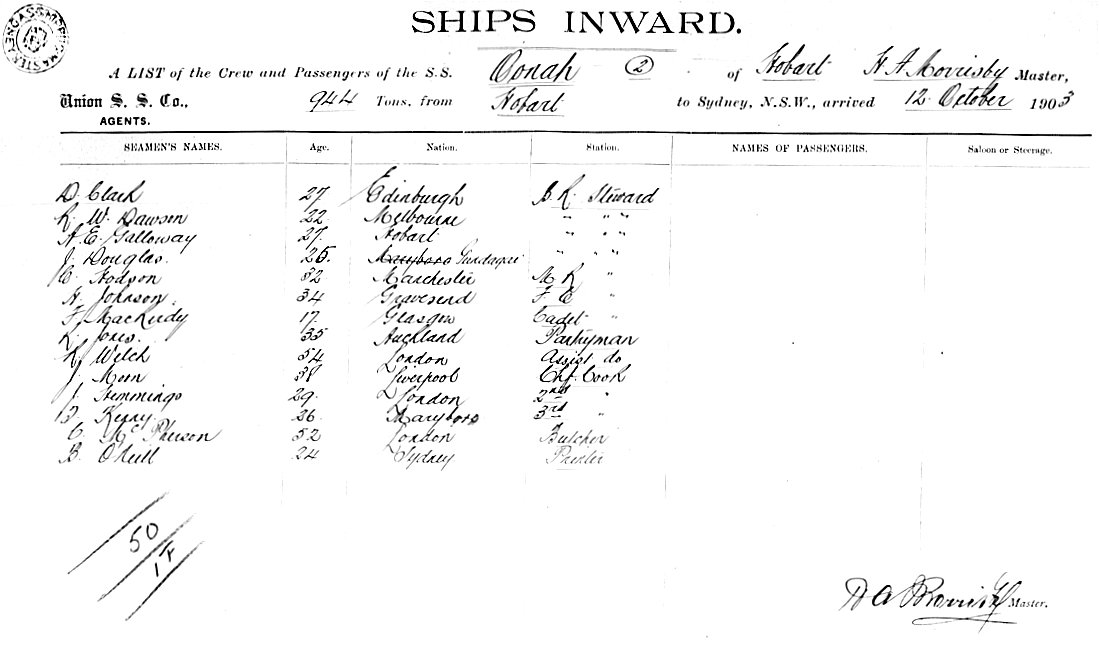 SHIPS INWARD.
A LIST of the Crew and Passengers of the S.S. Oonah (2) of Hobart H A Morrisby Master,
Union S. S. Co., 944 Tons, from Hobart to Sydney, N.S.W., arrived 12 October 1903
AGENTS.
SEAMEN'S NAMES. Age. Nation. Station. NAMES OF PASSENGERS. Saloon or Steerage.
D. Clark 27 Edinburgh B. R. Steward
R. W. Dawson 22 Melbourne " " "
A. E. Galloway 27 Hobart " " "
J. Douglas 25 Maryboro Gundagai " " "
C. Hodson 32 Manchester M R "
H. Johnson 34 Gravesend F C "
F. 17 Glasgow Cadet "
R. Jones. 35 Auckland Pantryman
R. Welch 54 London Assist do
J. 38 Liverpool Chf. Cook
J. Hemmings 29 London 2nd "
Kenny 26 Maryboro 3rd "
C. McPherson 52 London Butcher
B. O'Neill 24 Sydney
50
14
H A Morrisby Master.